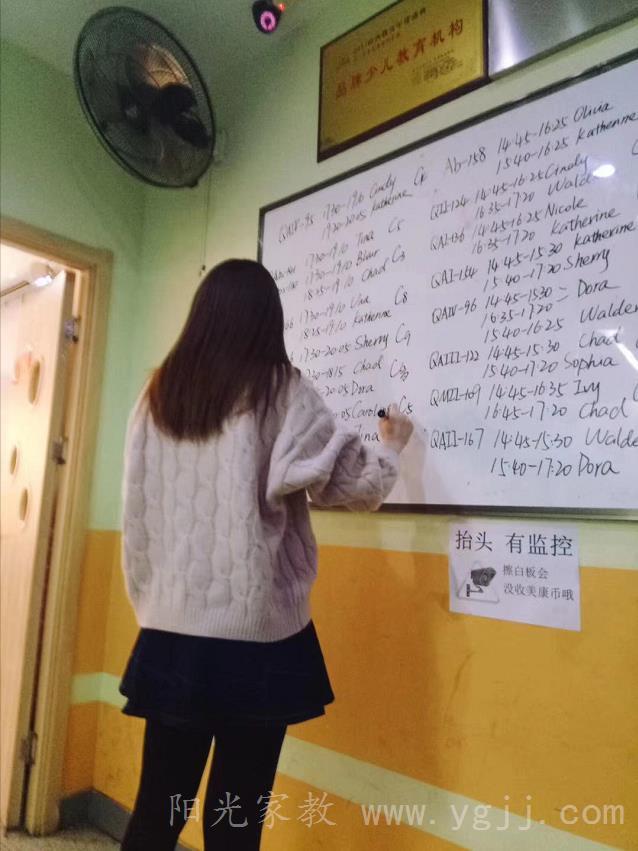 品牌少儿教育机构
QAIV-95 17:30-19:10 Cindy
19:20-20:05 Katherine
17:30-19:10 Tina C5
17:30-19:10 Blair
18:25-19:10 Chad C3
17:30-19:10 Una C8
18:25-19:10 Katherine
17:30-20:05 Sherry C9
Chad
20:05 Dora
Carol C5
Ab-158 14:45-16:25 Olivia
15:40-16:25 Katherine
QII-124 14:45-16:25 Cindy
16:35-17:20 Walde
QAI-136 14:45-16:25 Nicole
16:35-17:20 Katherine
QAI-154 14:45-15:30 Katherine
15:40-17:20 Sherry
QAIV-96 14:45-15:30 Dora
16:35-17:20
15:40-16:25 Walden
QAIII-122 14:45-15:30 Chad
15:40-17:20 Sophia
QMII-169 14:45-16:35 Ivy
16:45-17:20 Chad
QAII-167 14:45-15:30 Walde
15:40-17:20 Dora
抬头 有监控
擦白板会
没收美康币哦
阳光家教 www.ygjj.com